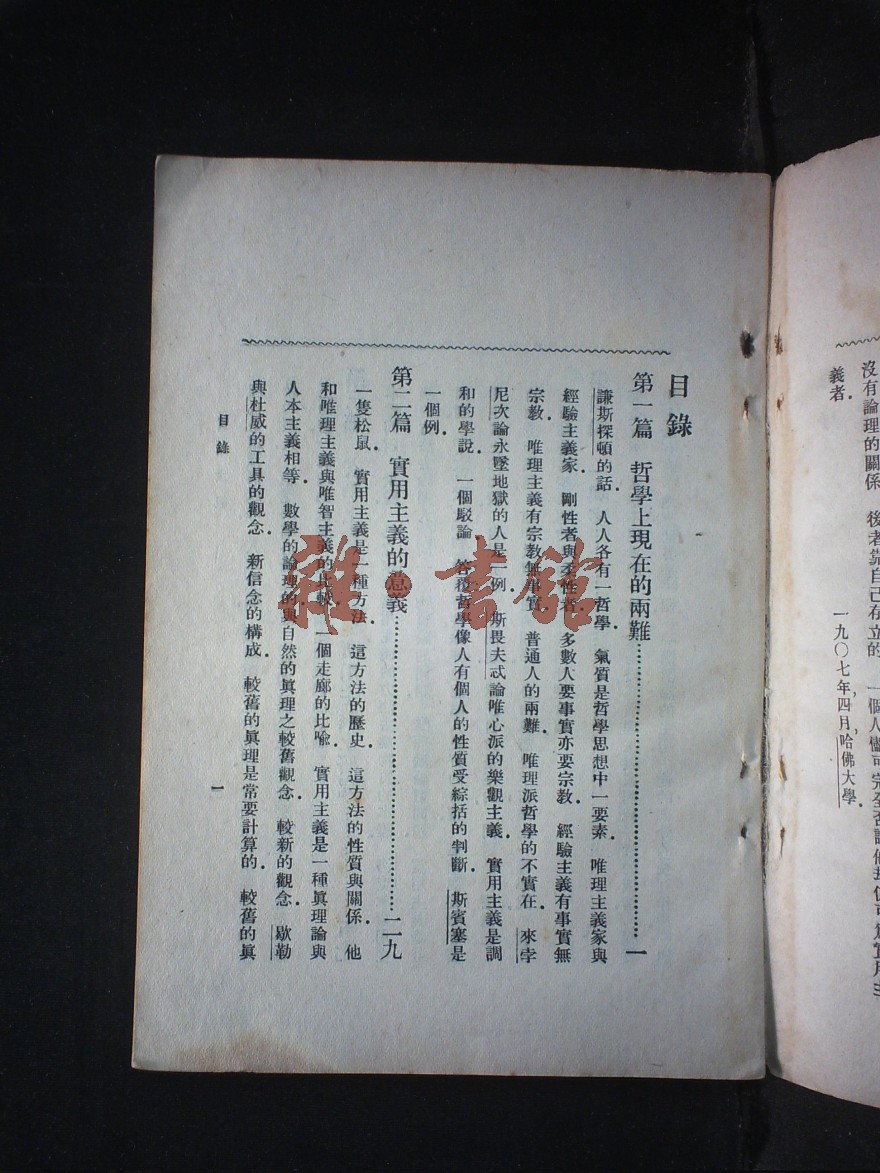 沒有論理的關係．後者靠自己存立的．一個人儘可完全否認他
義者．
一九〇七年，四月，哈佛大學．
目錄
第一篇　哲學上現在的兩難……一
謙斯探頓的話．人人各有一哲學．氣質是哲學思想中一要素．唯理主義家與
經驗主義家．剛性者與柔性者．多數人要事實亦要宗教．經驗主義有事實無
宗教．唯理主義有宗教無事實．普通人的兩難．唯理派哲學的不實在．來孛
尼次論永墜地獄的人是一例．斯畏夫忒論唯心派的樂觀主義．實用主義是調
和的學說．一個駁論．答覆哲學像人有個人的性質受綜括的判斷．斯賓塞是
一個例．
第二篇　實用主義的意義……二九
一隻松鼠．實用主義是一種方法．這方法的歷史．這方法的性質與關係．他
和唯理主義與唯智主義的比較．一個走廊的比喩．實用主義是一種眞理論與
人本主義相等．數學的論理的與自然的眞理之較舊觀念．較新的觀念．歇勒
與杜威的工具的觀念．新信念的構成．較舊的眞理是常要計算的．較舊的眞
目錄
一
雜·書館